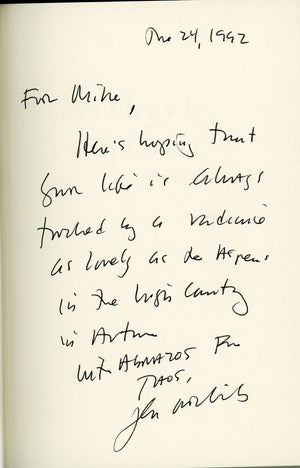 Dec 24, 1992
For Mike,
Here's hoping that
your life is always
touched by a radiance
as lovely as the Aspens
in the high country
in Autumn
With ABRAZOS from
TAOS,
John Nichols